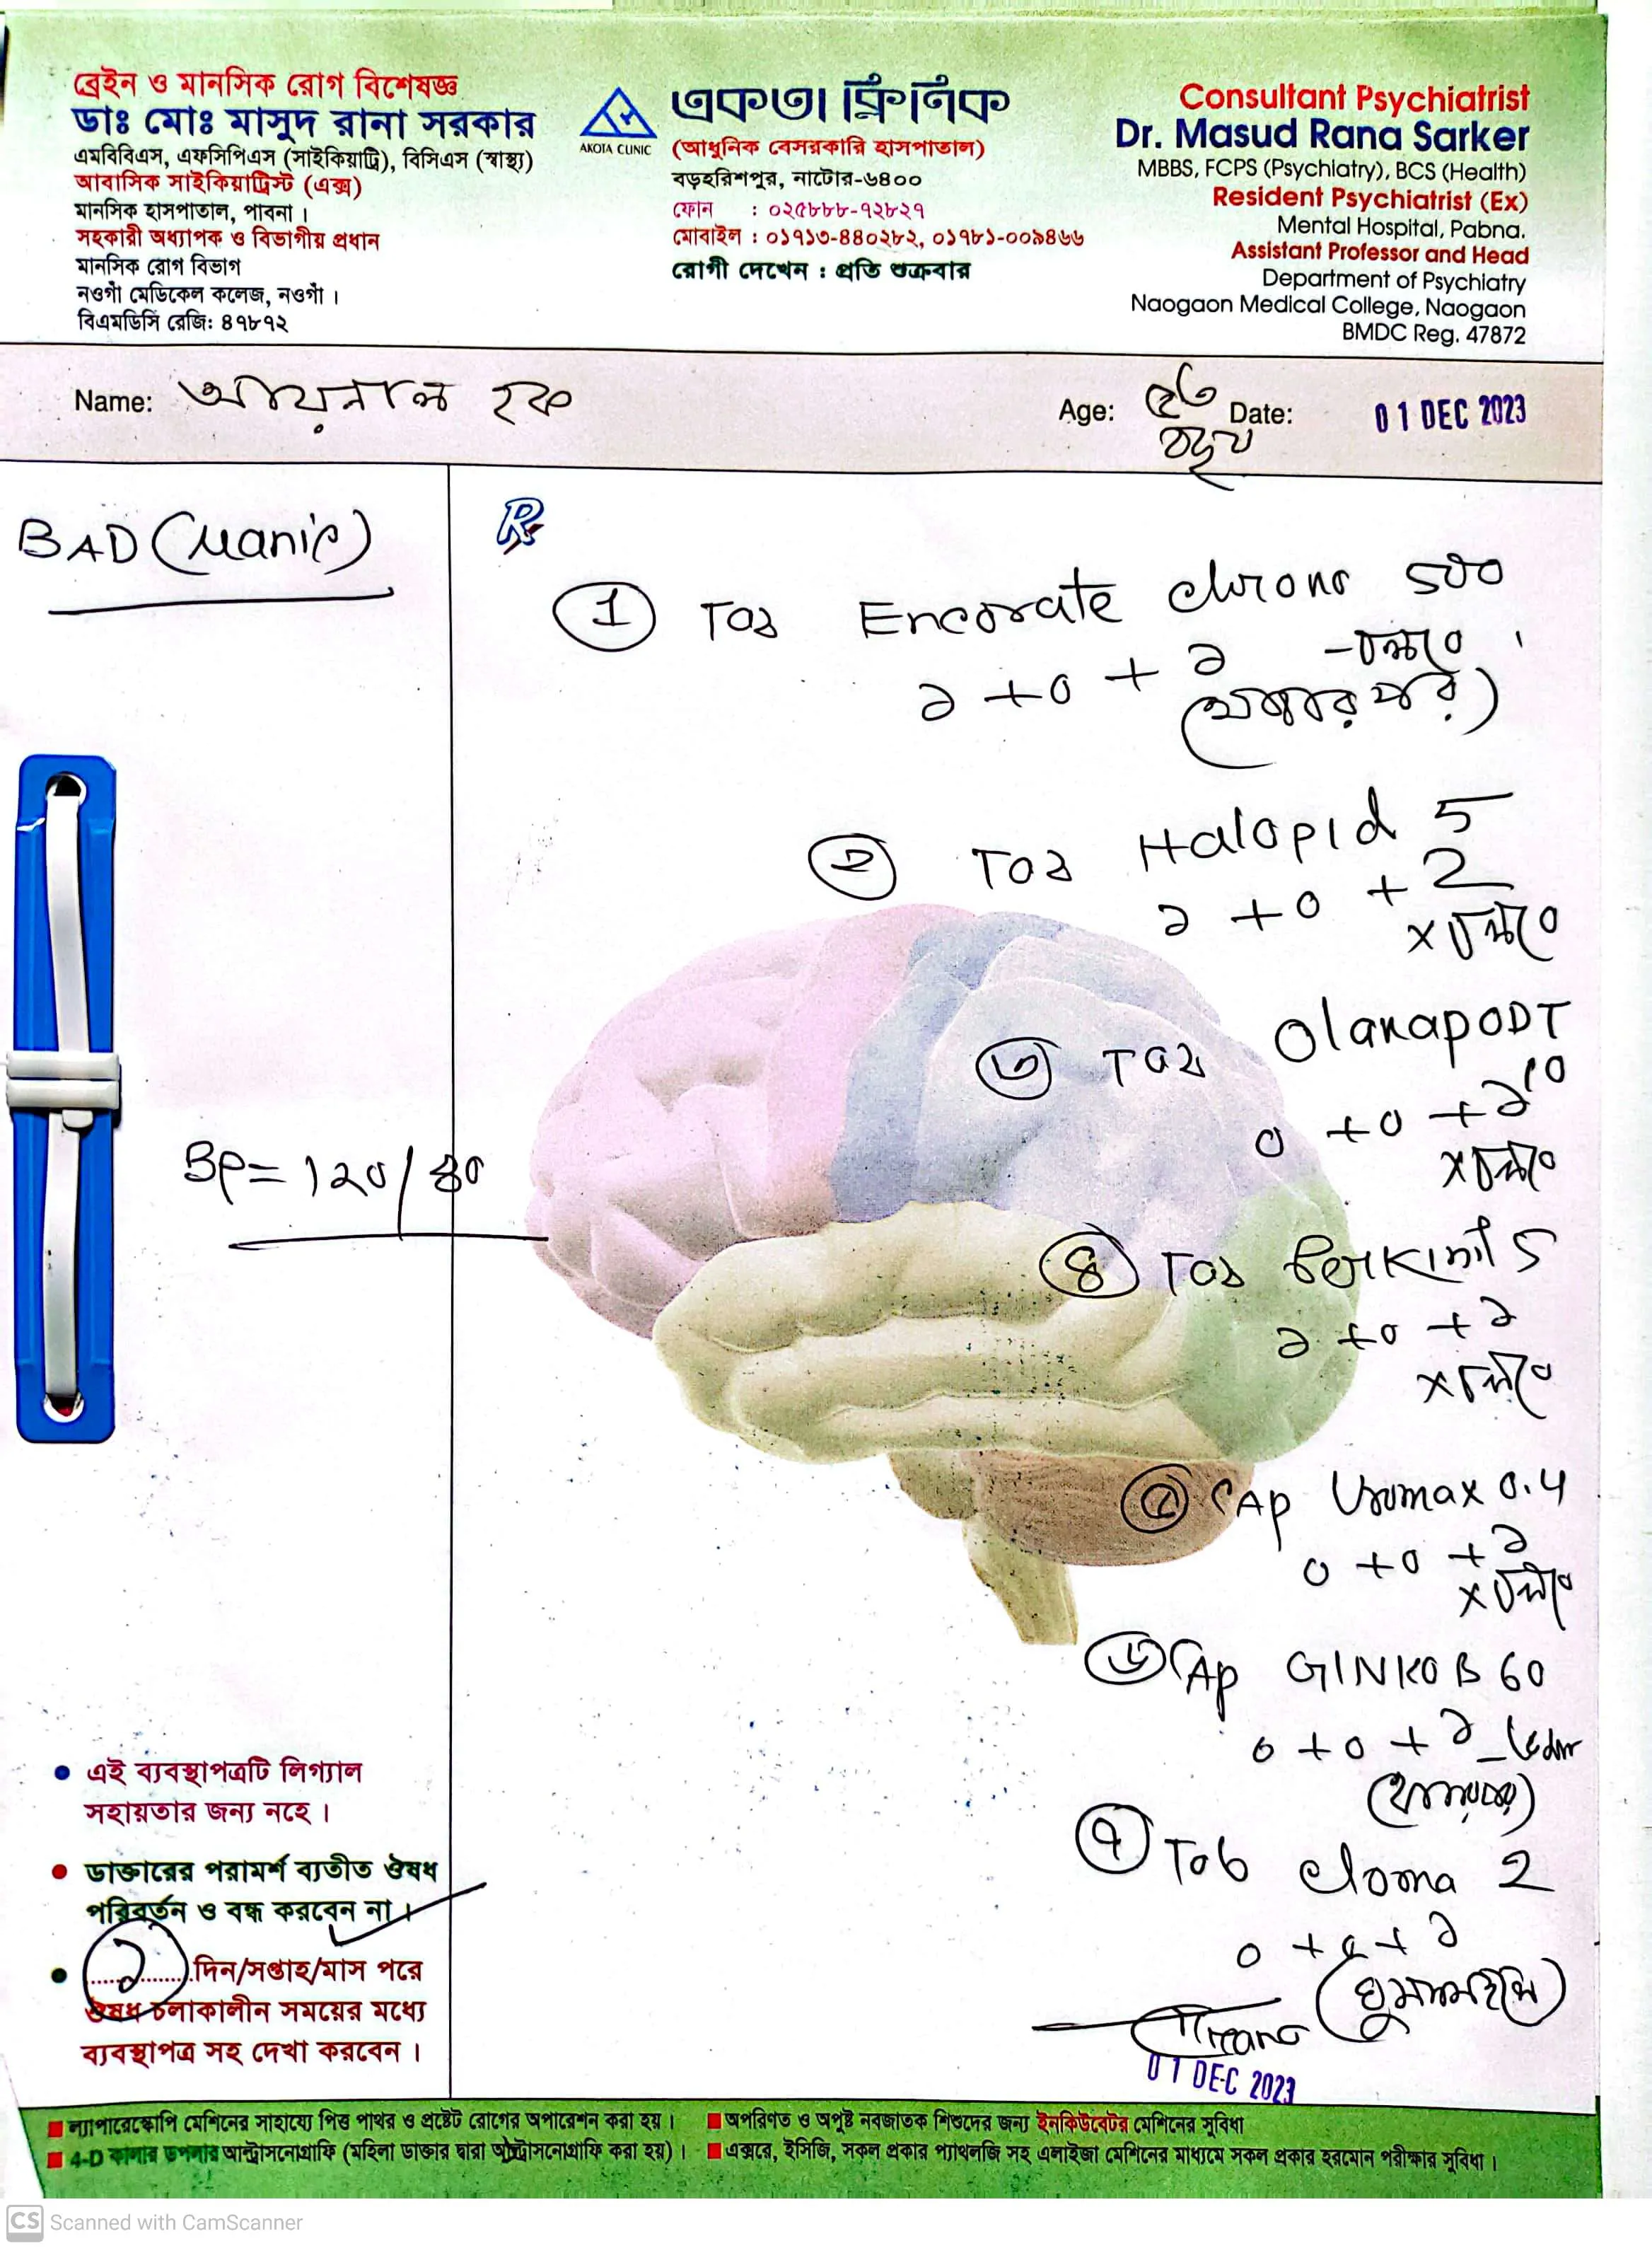 ব্রেইন ও মানসিক রোগ বিশেষজ্ঞ
ডাঃ মোঃ মাসুদ রানা সরকার
এমবিবিএস, এফসিপিএস (সাইকিয়াট্রি), বিসিএস (স্বাস্থ্য)
আবাসিক সাইকিয়াট্রিস্ট (এক্স)
মানসিক হাসপাতাল, পাবনা।
সহকারী অধ্যাপক ও বিভাগীয় প্রধান
মানসিক রোগ বিভাগ
নওগাঁ মেডিকেল কলেজ, নওগাঁ।
বিএমডিসি রেজি: ৪৭৮৭২
AKOTA CLINIC
একতা ক্লিনিক
(আধুনিক বেসরকারি হাসপাতাল)
বড়হরিশপুর, নাটোর-৬৪০০
ফোন : ০২৫৮৮৮-৭২৮২৭
মোবাইল : ০১৭১৩-৪৪০২৮২, ০১৭৮১-০০৯৪৬৬
রোগী দেখেন : প্রতি শুক্রবার
Consultant Psychiatrist
Dr. Masud Rana Sarker
MBBS, FCPS (Psychiatry), BCS (Health)
Resident Psychiatrist (Ex)
Mental Hospital, Pabna.
Assistant Professor and Head
Department of Psychiatry
Naogaon Medical College, Naogaon
BMDC Reg. 47872
Name: আয়নাল হক Age: ৫৩ বছর Date: 01 DEC 2023
BAD (Manic)
BP = 120/80
Rx
1 Tab Encorate chrono 500
১ + ০ + ১ - চলবে
(খাবার পরে)
২ Tab Halopid 5
১ + ০ + 2
x চলবে
৩ Tab OlanapODT
10
০ + ০ + ১
x চলবে
৪ Tab Perkinil 5
১ + ০ + ১
x চলবে
৫ Cap Uromax 0.4
০ + ০ + ১
x চলবে
৬ Cap GINKO B 60
০ + ০ + ১
৭ Tab clona 2
০ + ০ + ১
01 DEC 2023
• এই ব্যবস্থাপত্রটি লিগ্যাল
সহায়তার জন্য নহে।
• ডাক্তারের পরামর্শ ব্যতীত ঔষধ
পরিবর্তন ও বন্ধ করবেন না।
• ১ দিন/সপ্তাহ/মাস পরে
ঔষধ চলাকালীন সময়ের মধ্যে
ব্যবস্থাপত্র সহ দেখা করবেন।
ল্যাপারেস্কোপি মেশিনের সাহায্যে পিত্ত পাথর ও প্রষ্টেট রোগের অপারেশন করা হয়। অপরিণত ও অপুষ্ট নবজাতক শিশুদের জন্য ইনকিউবেটর মেশিনের সুবিধা
4-D কালার ডপলার আল্ট্রাসনোগ্রাফি (মহিলা ডাক্তার দ্বারা আল্ট্রাসনোগ্রাফি করা হয়)। এক্সরে, ইসিজি, সকল প্রকার প্যাথলজি সহ এলাইজা মেশিনের মাধ্যমে সকল প্রকার হরমোন পরীক্ষার সুবিধা।
CS Scanned with CamScanner